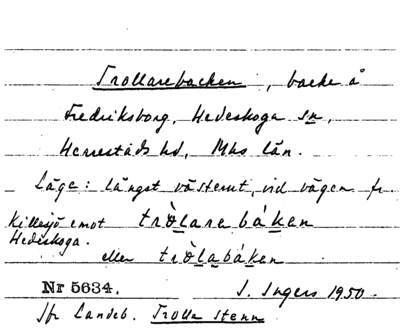 Trollarebacken, backe å
Fredriksborg, Hedeskoga sn,
Herrestads hd, Mhs län.
Läge: längst västerut, vid vägen fr
Killesjö emot tròlarebáken
Hedeskoga.
eller tròlabáken
Nr 5634. I. Ingers 1950.
Jfr Landeb. Trolla stenn